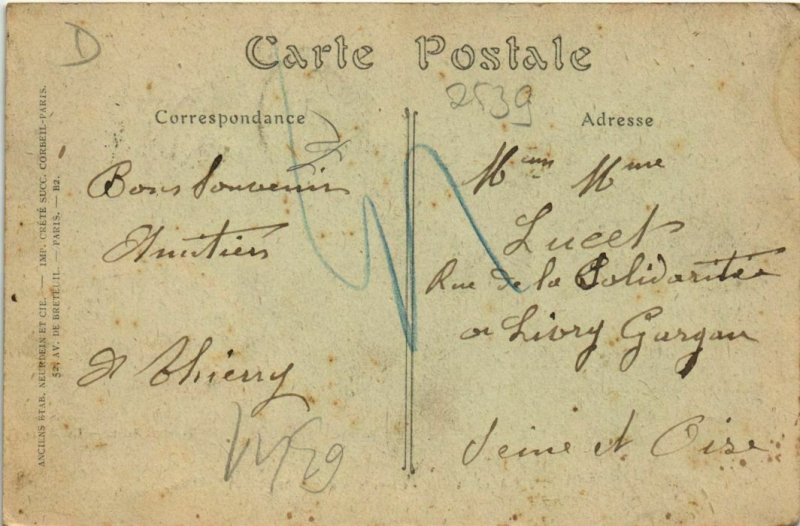 D
Carte Postale
2539
Correspondance
Bons Souvenirs
Amitiés
Thierry
Adresse
Mme
Lucet
Rue de la Solidarité
a Livry Gargan
Seine et Oise
ANCIENS ETAB. NEURDEIN ET CIE. — IMP. CRÉTÉ SUCC. CORBEIL-PARIS.
52, AV. DE BRETEUIL. — PARIS. — B2.